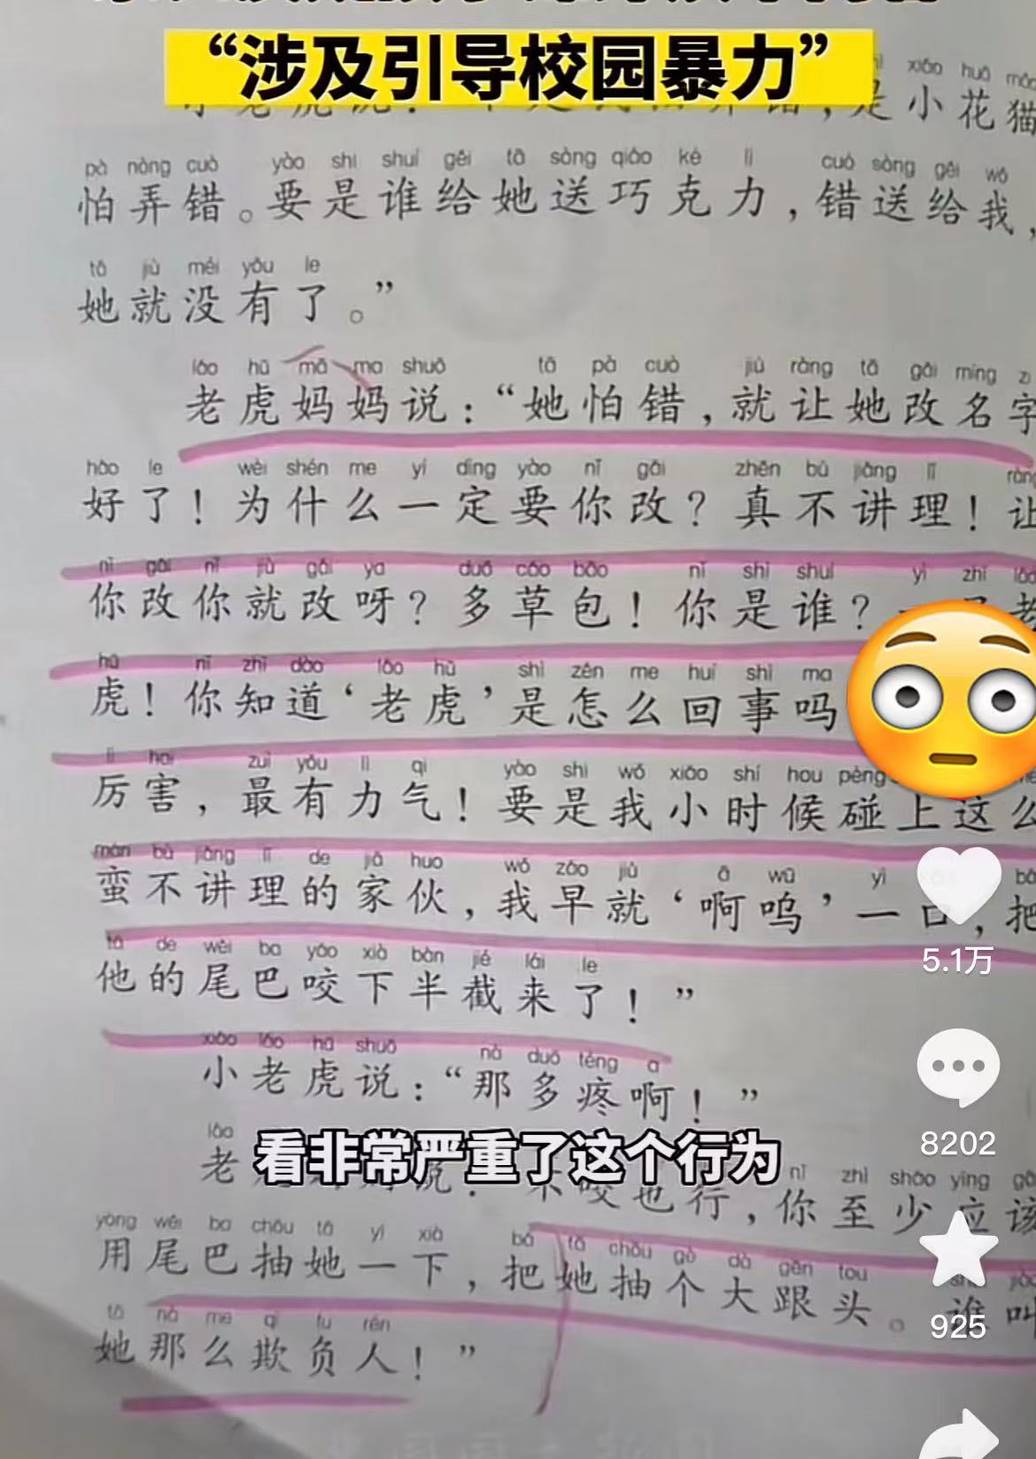 “涉及引导校园暴力”
xiǎo huā māo
是小花猫
pà nòng cuò yào shi shuí gěi tā sòng qiǎo kè lì cuò sòng gěi wǒ
怕弄错。要是谁给她送巧克力，错送给我，
tā jiù méi yǒu le
她就没有了。”
lǎo hǔ mā ma shuō tā pà cuò jiù ràng tā gǎi míng zi
老虎妈妈说：“她怕错，就让她改名字
hǎo le wèi shén me yí dìng yào nǐ gǎi zhēn bù jiǎng lǐ ràng
好了！为什么一定要你改？真不讲理！让
nǐ gǎi nǐ jiù gǎi ya duō cǎo bāo nǐ shì shuí yì zhī lǎo
你改你就改呀？多草包！你是谁？一只老
hǔ nǐ zhī dào lǎo hǔ shì zěn me huí shì ma
虎！你知道‘老虎’是怎么回事吗
lì hai zuì yǒu lì qi yào shi wǒ xiǎo shí hou pèng
厉害，最有力气！要是我小时候碰上这么
mán bù jiǎng lǐ de jiā huo wǒ zǎo jiù ā wū yì bǎ
蛮不讲理的家伙，我早就‘啊呜’一口，把
tā de wěi ba yǎo xià bàn jié lái le
他的尾巴咬下半截来了！”
5.1万
xiǎo lǎo hǔ shuō nà duō téng a
小老虎说：“那多疼啊！”
8202
lǎo
老
看非常严重了这个行为
nǐ zhì shǎo yīng gāi
不咬也行，你至少应该
yòng wěi ba chōu tā yí xià bǎ tā chōu gè dà gēn tou
用尾巴抽她一下，把她抽个大跟头。谁叫
925
tā nà me qī fu rén
她那么欺负人！”